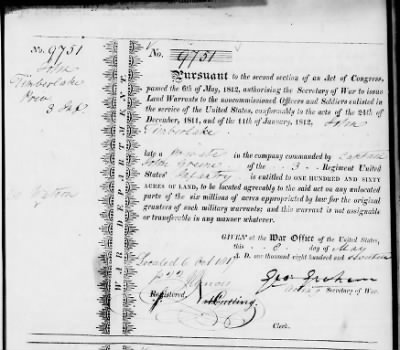 No. 9751
John
Timberlake
3
WAR DEPARTMENT.
No. 9751
Pursuant to the second section of an Act of Congress,
passed the 6th of May, 1812, authorising the Secretary of War to issue
Land Warrants to the noncommissioned Officers and Soldiers enlisted in
the service of the United States, conformably to the acts of the 24th of
December, 1811, and of the 11th of January, 1812, John
Timberlake
late a Private in the company commanded by Captain
John Greene of the 3 Regiment United
States' Infantry is entitled to ONE HUNDRED AND SIXTY
ACRES OF LAND, to be located agreeably to the said act on any unlocated
part of the six millions of acres appropriated by law for the original
grantees of such military warrants; and this warrant is not assignable
or transferable in any manner whatever.
GIVEN at the War Office of the United States,
this 8 day of May
A. D. one thousand eight hundred and
Located 6 Oct 1817
Illinois
Geo Graham
Registered, Secretary of War.
Clerk.